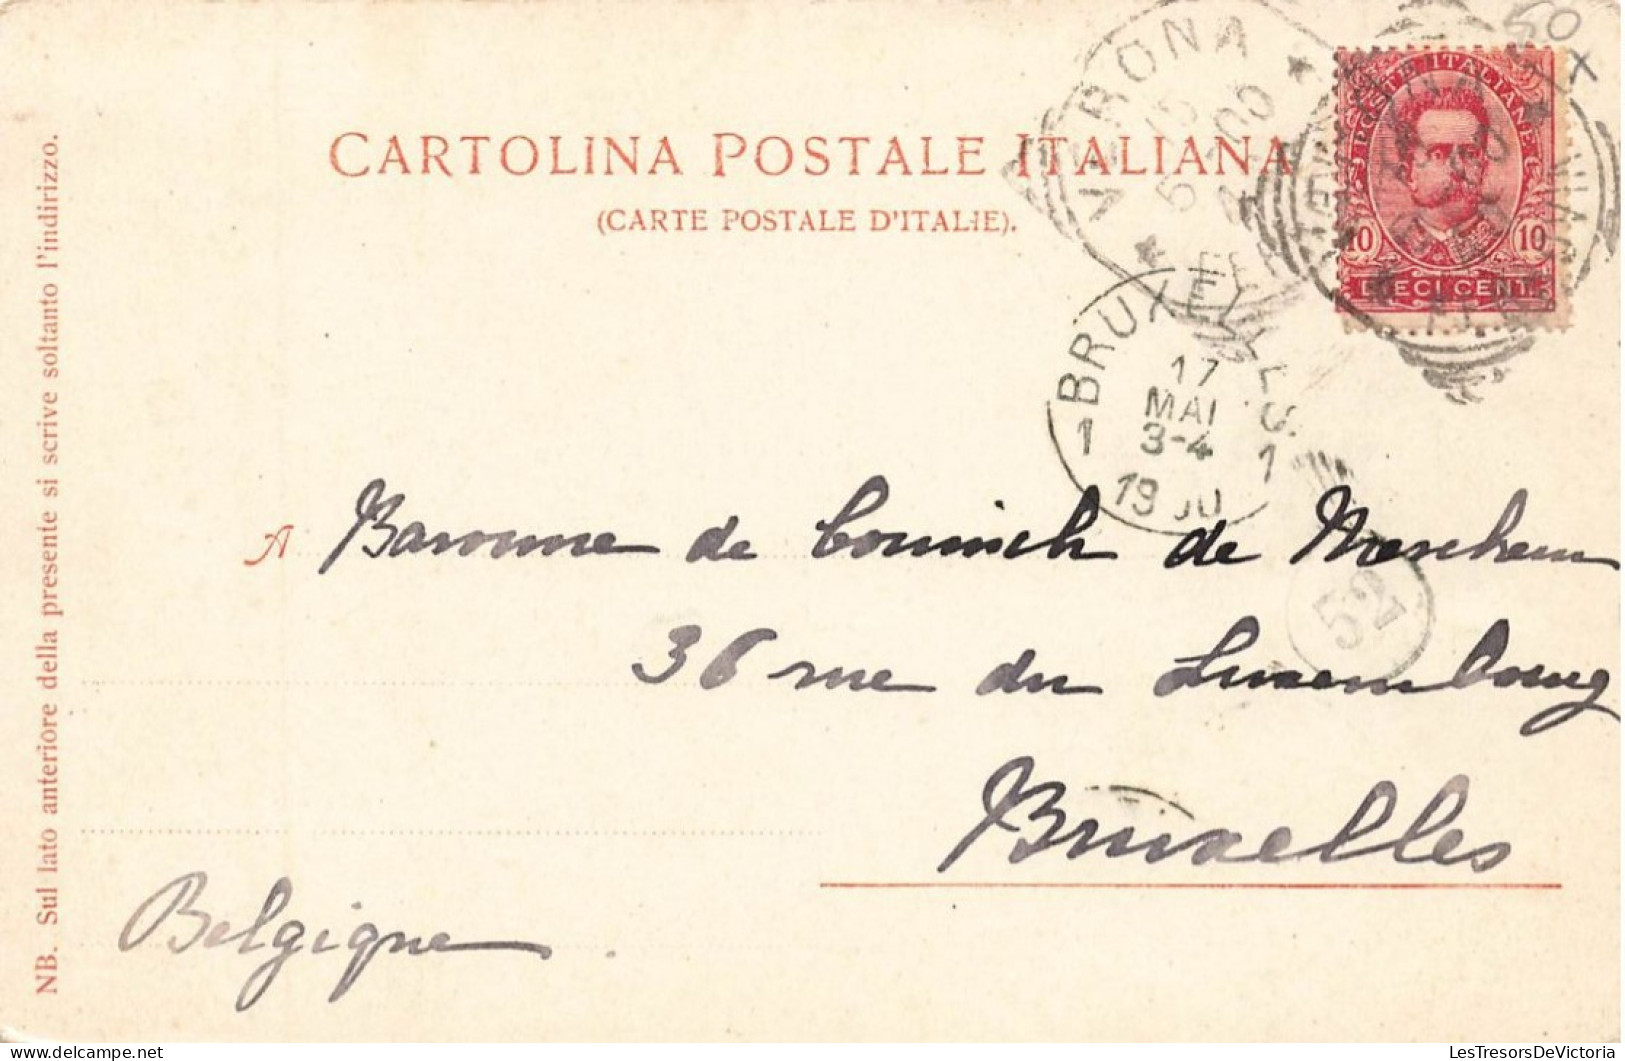 50
X
VERONA
POSTE ITALIANE
10 10
DIECI CENT.
CARTOLINA POSTALE ITALIANA
(CARTE POSTALE D'ITALIE).
BRUXELLES
17
MAI
3-4
1 1
1900
A Baronne de de
52
36 rue du Luxembourg
Bruxelles
Belgique
NB. Sul lato anteriore della presente si scrive soltanto l'indirizzo.
LesTresorsDeVictoria